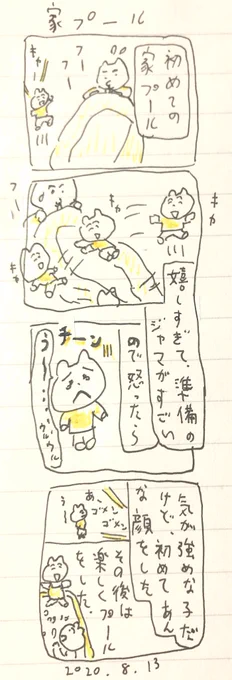 家プール
初めての
家プール
キャー
フー
フー
キャ
キャ
キャ
フー
嬉しすぎて、準備の
ジャマがすごい
ので怒ったら
チーン
うー…ガルウル
気が強めな子だ
けど、初めてあん
な顔をした
あ
ゴメン
ゴメン
うー
その後は
楽しくプール
をした。
2020.8.13